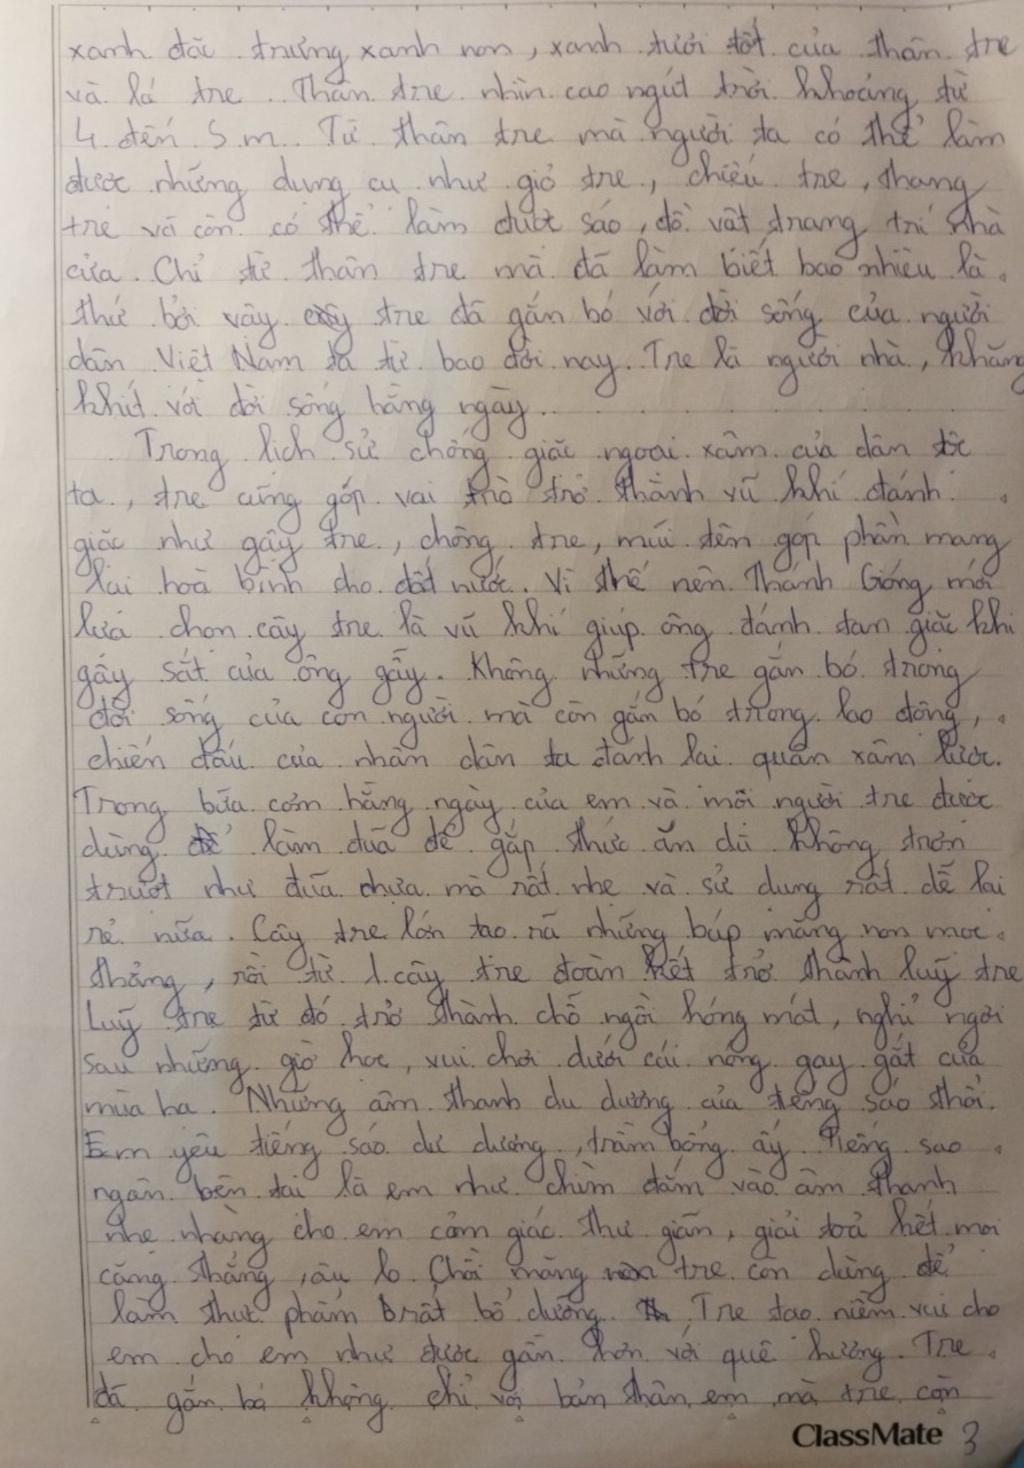 xanh đặc trưng xanh non, xanh tươi tốt của thân tre
và lá tre. Thân tre nhìn cao ngút trời khoảng từ
4 đến 5 m. Từ thân tre mà người ta có thể làm
được những dụng cụ như giỏ tre, chiếu tre, thang
tre và còn có thể làm được sáo, đồ vật trang trí nhà
cửa. Chỉ từ thân tre mà đã làm biết bao nhiêu là
thứ bởi vậy cây tre đã gắn bó với đời sống của người
dân Việt Nam ta từ bao đời nay. Tre là người nhà, khăng
khít với đời sống hằng ngày.
Trong lịch sử chống giặc ngoại xâm của dân tộc
ta, tre cũng góp vai trò trở thành vũ khí đánh
giặc như gậy tre, chông tre, mũi tên góp phần mang
lại hoà bình cho đất nước. Vì thế nên Thánh Gióng mới
lựa chọn cây tre là vũ khí giúp ông đánh tan giặc khi
gậy sắt của ông gãy. Không những tre gắn bó trong
đời sống của con người mà còn gắn bó trong lao động,
chiến đấu của nhân dân ta đánh lại quân xâm lược.
Trong bữa cơm hằng ngày của em và mỗi người tre được
dùng để làm đũa để gắp thức ăn dù không trơn
trượt như đũa nhựa mà rất nhẹ và sử dụng rất dễ lại
rẻ nữa. Cây tre lớn tạo ra những búp măng non mọc
thẳng, rồi từ 1 cây tre đoàn kết trở thành luỹ tre
Luỹ tre từ đó trở thành chỗ ngồi hóng mát, nghỉ ngơi
sau những giờ học, vui chơi dưới cái nóng gay gắt của
mùa hạ. Những âm thanh du dương của tiếng sáo thổi.
Em yêu tiếng sáo du dương, trầm bổng ấy. Tiếng sáo
ngân bên tai là em như chìm đắm vào âm thanh
nhẹ nhàng cho em cảm giác thư giãn, giải toả hết mọi
căng thẳng, âu lo. Chồi măng tre còn dùng để
làm thực phẩm rất bổ dưỡng. Tre tạo niềm vui cho
em cho em như được gần hơn với quê hương. Tre
đã gắn bó không chỉ với bản thân em mà tre còn
ClassMate 3